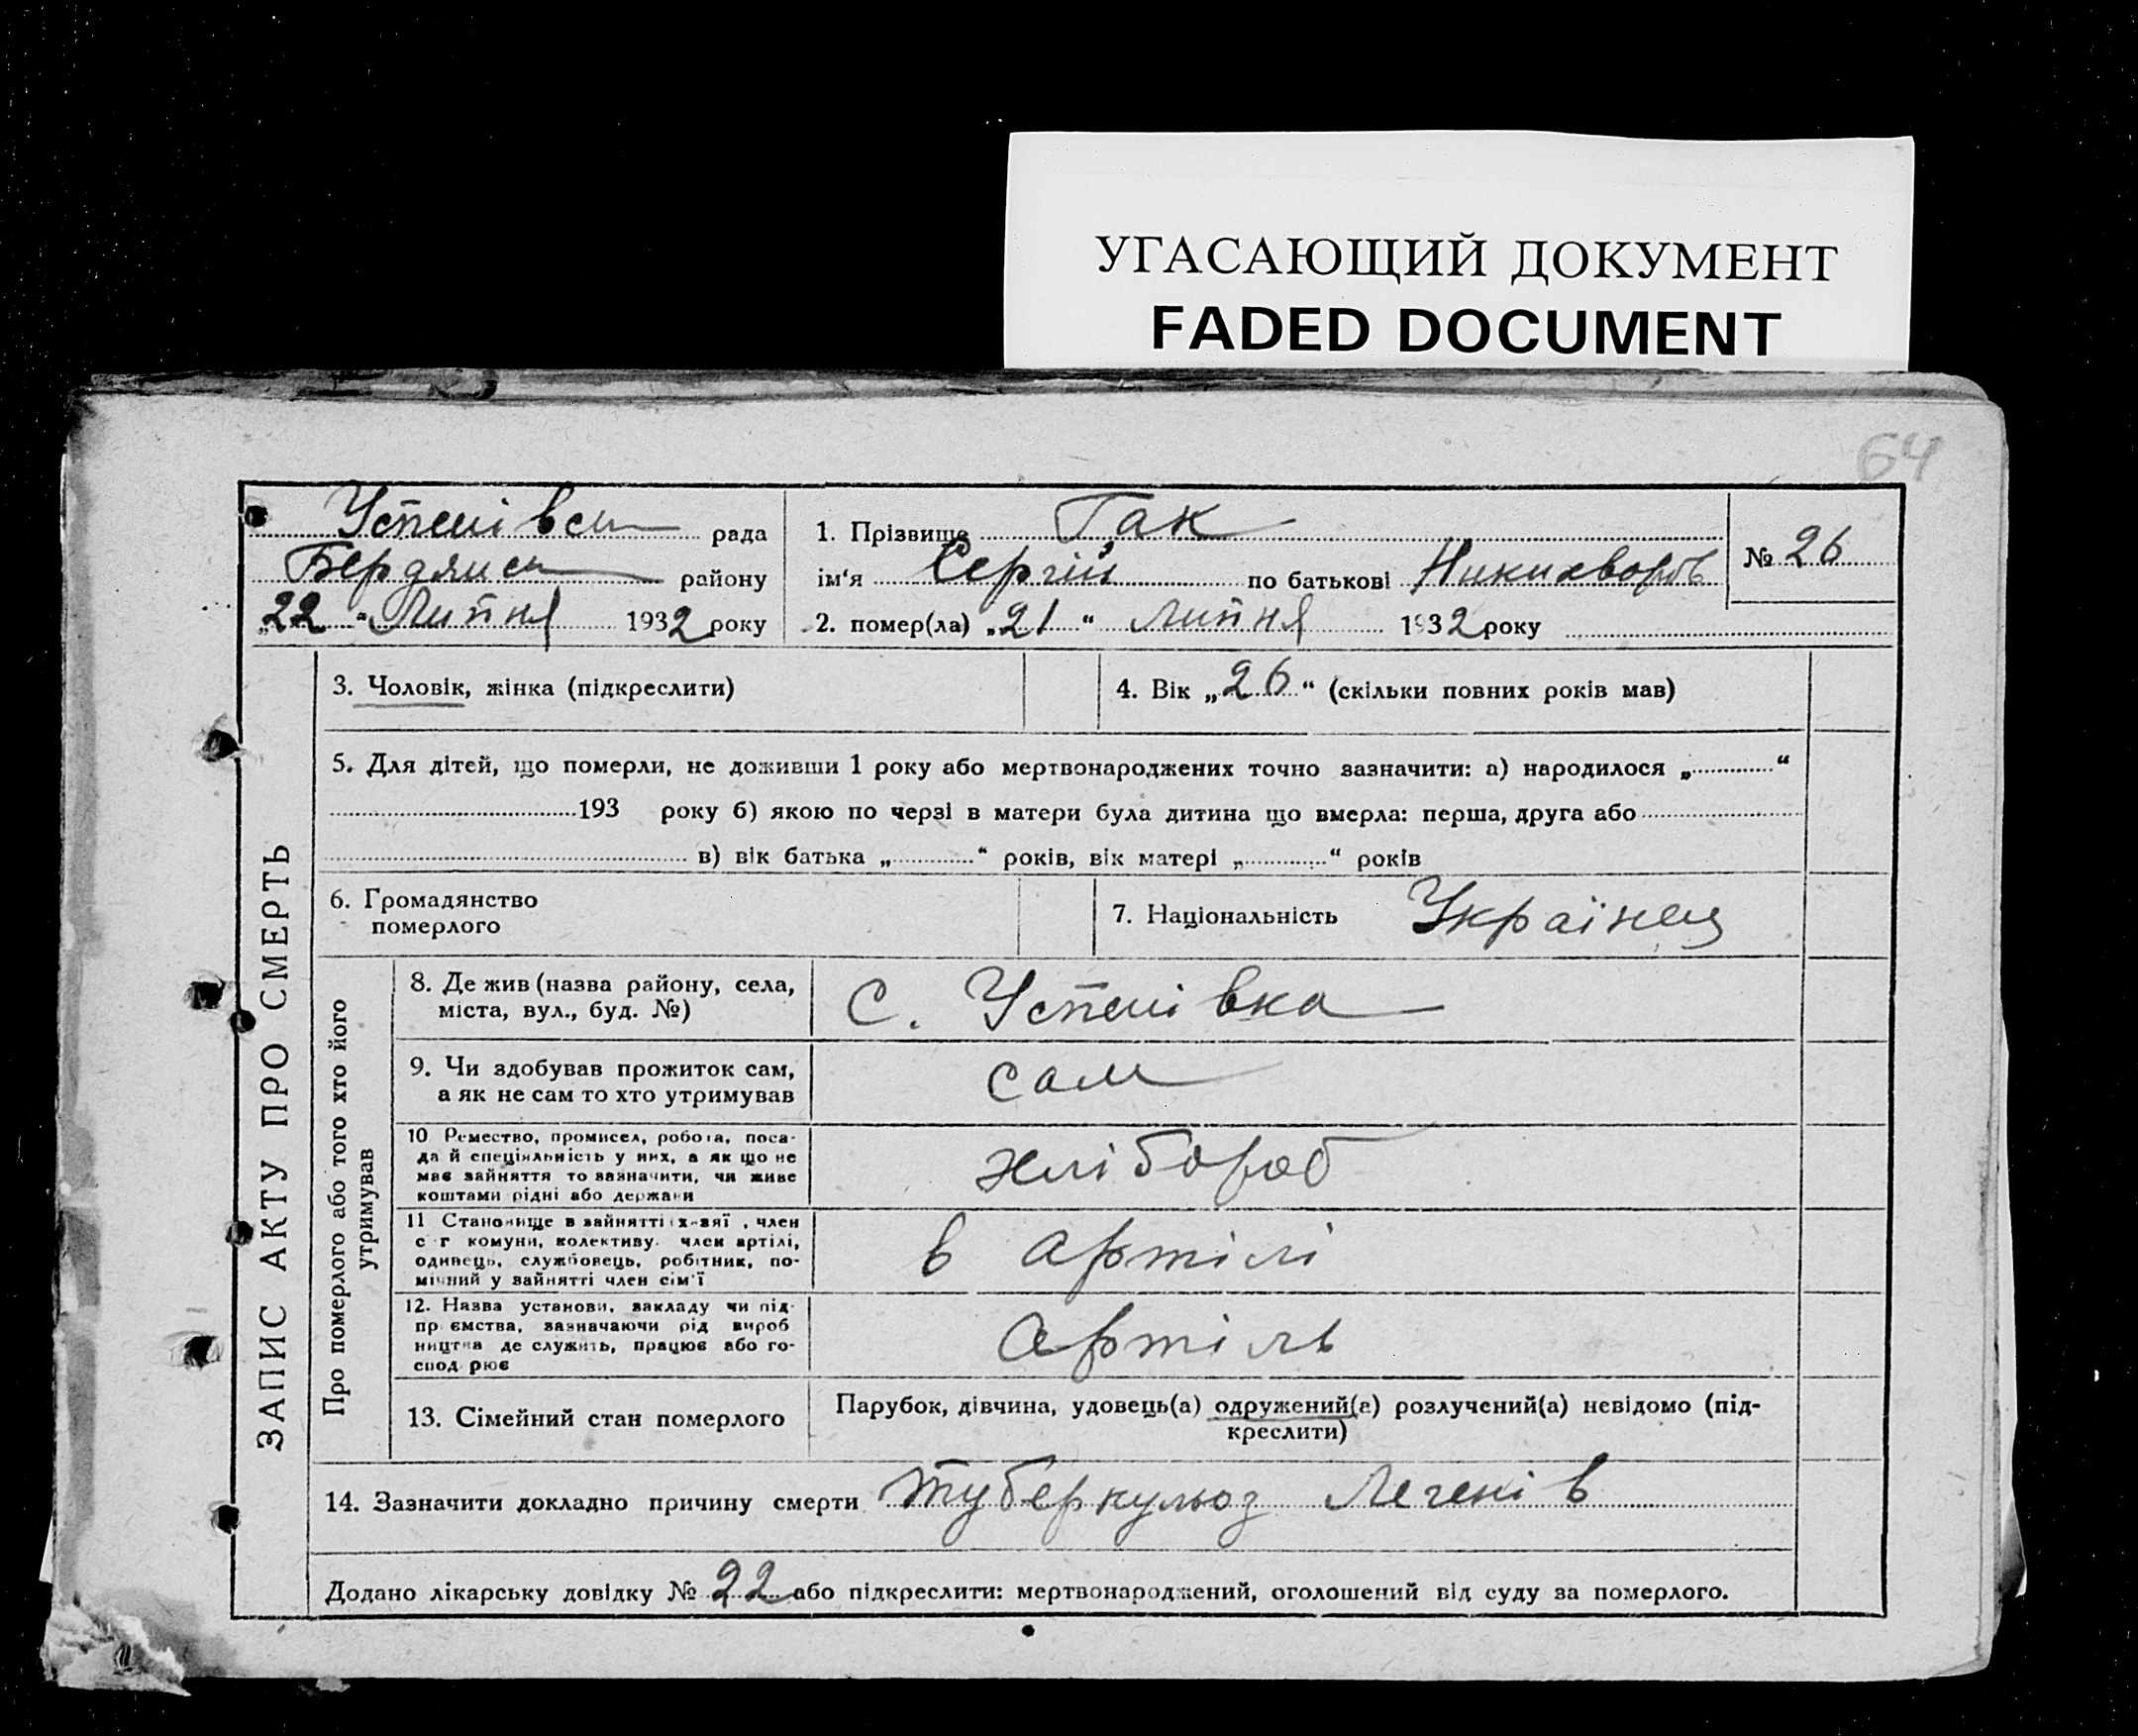 УГАСАЮЩИЙ ДОКУМЕНТ
FADED DOCUMENT
64
Успенівсь рада
Бердянсь району
„22“ Липня 1932 року
1. Прізвище Гак
ім‘я Сергій по батькові Никихворов
2. помер(ла) „21“ Липня 1932 року
№ 26
ЗАПИС АКТУ ПРО СМЕРТЬ
3. Чоловік, жінка (підкреслити)
4. Вік „26“ (скільки повних років мав)
5. Для дітей, що померли, не доживши 1 року або мертвонароджених точно зазначити: а) народилося „ “
193 року б) якою по черзі в матери була дитина що вмерла: перша, друга або
в) вік батька „ “ років, вік матері „ “ років
6. Громадянство
померлого
7. Національність Українец
Про померлого або того хто його
утримував
8. Де жив (назва району, села,
міста, вул., буд. №)
С. Успенівка
9. Чи здобував прожиток сам,
а як не сам то хто утримував
сам
10 Ремество, промисел, робота, поса-
да й спеціяльність у них, а як що не
має зайняття то зазначити, чи живе
коштами рідні або держави
хлібороб
11 Становище в зайнятті , член
с г комуни, колективу. член артілі,
одинець, службовець, робітник, по-
мічний у зайнятті член сім‘ї
в артілі
12. Назва установи, закладу чи під-
пр ємства, зазначаючи рід вироб
ництва де служить, працює або го-
спод рює
Артіль
13. Сімейний стан померлого
Парубок, дівчина, удовець(а) одружений(а) розлучений(а) невідомо (під-
креслити)
14. Зазначити докладно причину смерти туберкульоз Легенів
Додано лікарську довідку № 22 або підкреслити: мертвонароджений, оголошений від суду за померлого.